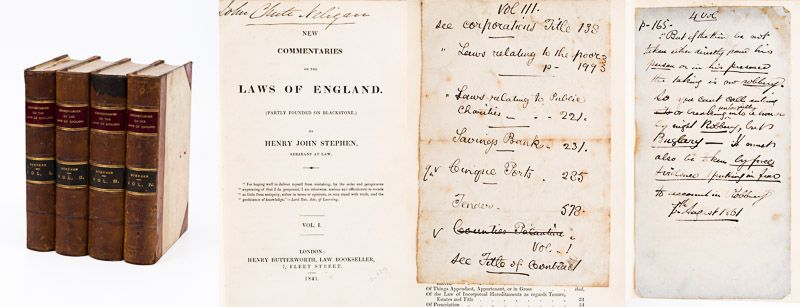 COMMENTARIES
ON THE
LAWS OF ENGLAND
STEPHEN
VOL. I.
COMMENTARIES
ON THE
LAWS OF ENGLAND
STEPHEN
VOL. II.
COMMENTARIES
ON THE
LAWS OF ENGLAND
STEPHEN
VOL. III.
COMMENTARIES
ON THE
LAWS OF ENGLAND
STEPHEN
VOL. IV.
John Chute Neligan
NEW
COMMENTARIES
ON THE
LAWS OF ENGLAND.
(PARTLY FOUNDED ON BLACKSTONE.)
BY
HENRY JOHN STEPHEN,
SERJEANT AT LAW.
"For hoping well to deliver myself from mistaking, by the order and perspicuous
"expressing of that I do propound, I am otherwise zealous and affectionate to recede
"as little from antiquity, either in terms or opinions, as may stand with truth, and the
"proficience of knowledge."—Lord Bac. Adv. of Learning.
VOL. I.
LONDON:
HENRY BUTTERWORTH, LAW BOOKSELLER,
7, FLEET STREET.
1841.
Vol III.
see Corporations Title 138
" Laws relating to the poor
p- 199
" Laws relating to Public
Charities - - - 221.
Savings Bank - 231.
Cinque Ports. - 285
Tender. - 578.
v Counties Palatine.
Vol. - 1
see Title of Contract
Of Things Appendant, Appurtenant, or in Gross ibid.
Of the Law of Incorporeal Hereditaments as regards Tenure,
Estates and Title 31
Of Prescription 34
4 Vol
p-165-
But if the thing be not
taken either directly from his
person or in his presence
the taking is no robbery.
So you cant call entering
or breaking into a house
by night Robbery, but
Burglary - It must
also be taken by force
putting in fear
to account in Robbery
August 1861